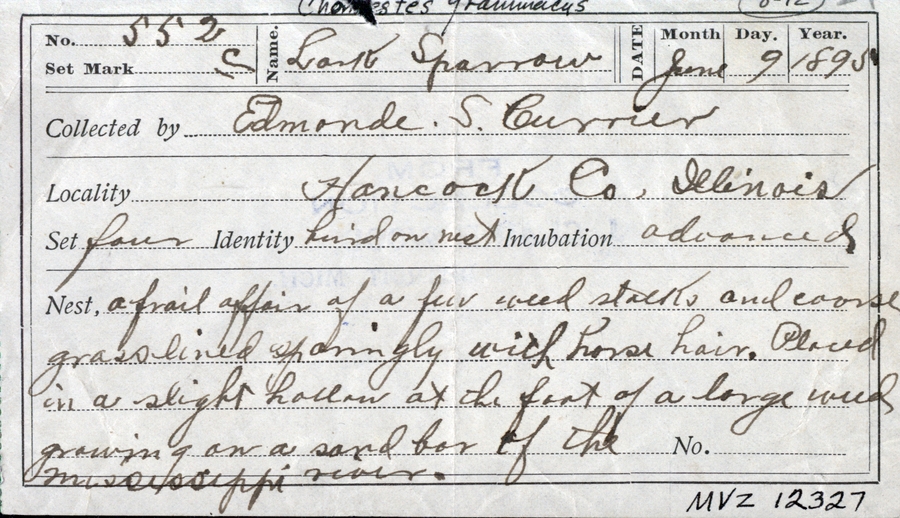 Chondestes grammacus (8-12)
No. 552 Name. Lark Sparrow DATE Month Day. Year.
Set Mark June 9 1895
Collected by Edmonde. S. Currier
Locality Hancock Co, Illinois
Set four Identity bird on nest Incubation advanced
Nest, a frail affair of a few weed stalks and coarse
grass lined sparingly with horse hair. Placed
in a slight hollow at the foot of a large weed
growing on a sand bar of the No.
Mississippi river.
MVZ 12327